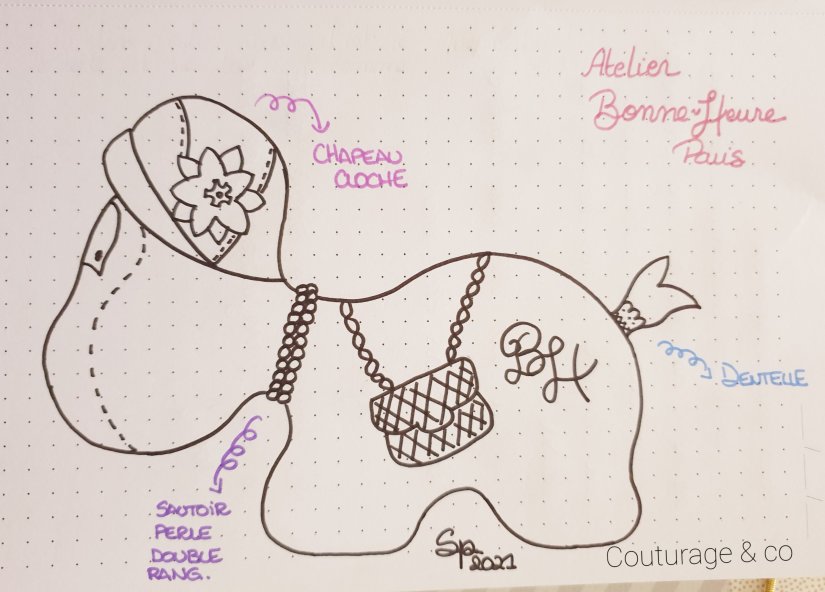 Atelier
Bonne-Heure
Paris
CHAPEAU
CLOCHE
BH
DENTELLE
SAUTOIR
PERLE
DOUBLE
RANG.
Sp
2021
Couturage & co